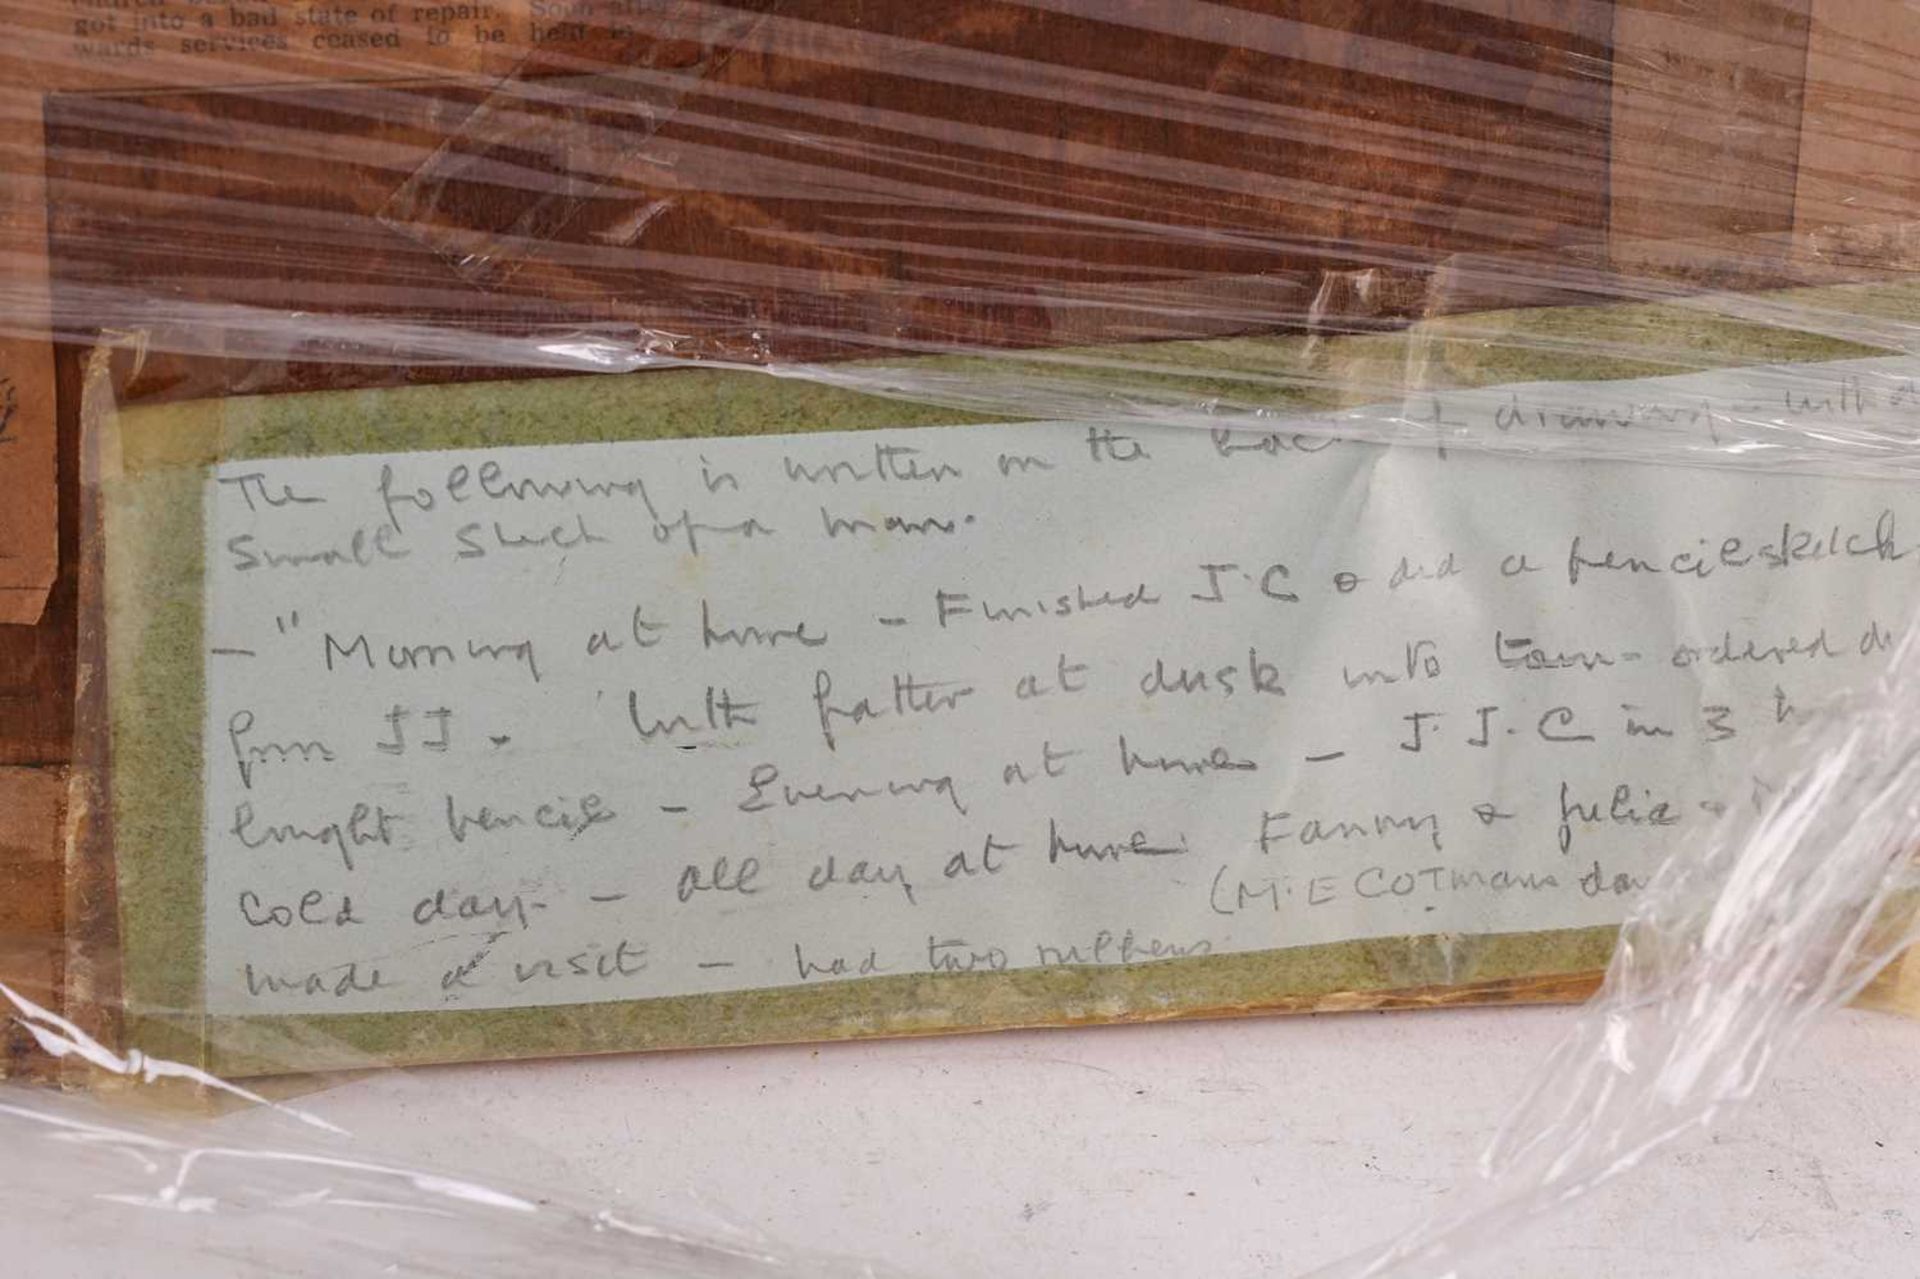 got into a bad state of repair. Soon after
wards services ceased to be held in
The following is written on the back of drawing - with a
Small Sketch of a man.
- "Morning at home - Finished J.C & did a pencil sketch
from JJ - With father at dusk into town - ordered
bought pencils - Evening at home - J.J.C in 3
Cold day - all day at home. Fanny & Julia
(M.E COTmans
made a visit - had two